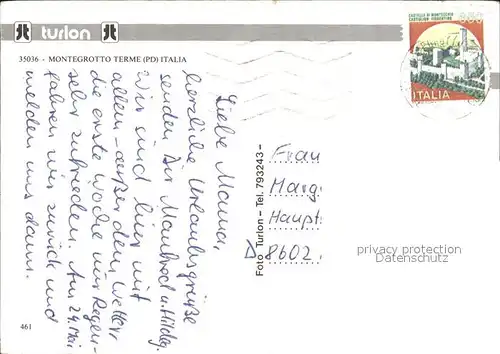 turlon
35036 - MONTEGROTTO TERME (PD) ITALIA
Liebe Mama,
herzliche Urlaubsgrüße
senden Dir Manfred u. Hildeg.
Wir sind hier mit
allem - außer dem Wetter
die erste Woche nur Regen -
sehr zufrieden. Am 24. Mai
fahren wir zurück und
melden uns dann.
Foto Turlon - Tel. 793243 -
CASTELLO DI MONTECCHIO
CASTIGLION FIORENTINO
ITALIA
Frau
Marg.
Haupt
D 8602
privacy protection
Datenschutz
461